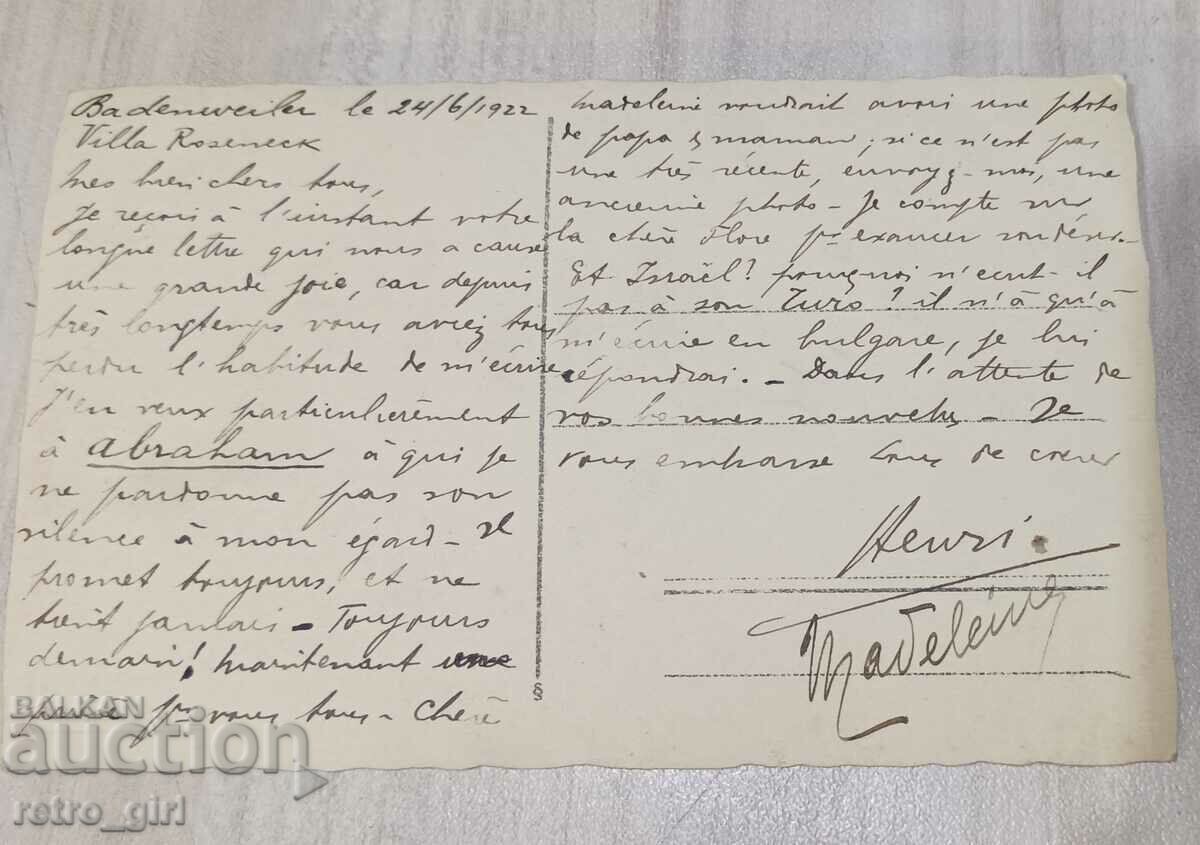 Badenweiler le 24/6/1922
Villa Roseneck
Mes bien chers tous,
Je reçois à l'instant votre
longue lettre qui nous a causé
une grande joie, car depuis
très longtemps vous aviez tous
perdu l'habitude de m'écrire
J'en veux particulièrement
à Abraham à qui je
ne pardonne pas son
silence à mon égard - Il
promet toujours, et ne
tient jamais - Toujours
demain! Maintenant une
prière pr vous tous - Chère
Madeleine voudrait avoir une photo
de papa & maman; si ce n'est pas
une très récente, envoyez-moi, une
ancienne photo - Je compte sur
la chère Flore pr exaucer son désir -
Et Israël? pourquoi n'écrit-il
pas à son ? il n'a qu'à
m'écrire en bulgare, je lui
répondrai. - Dans l'attente de
vos bonnes nouvelles - Je
vous embrasse tous de coeur
Henri.
Madeleine
§
BALKAN
auction
retro_girl